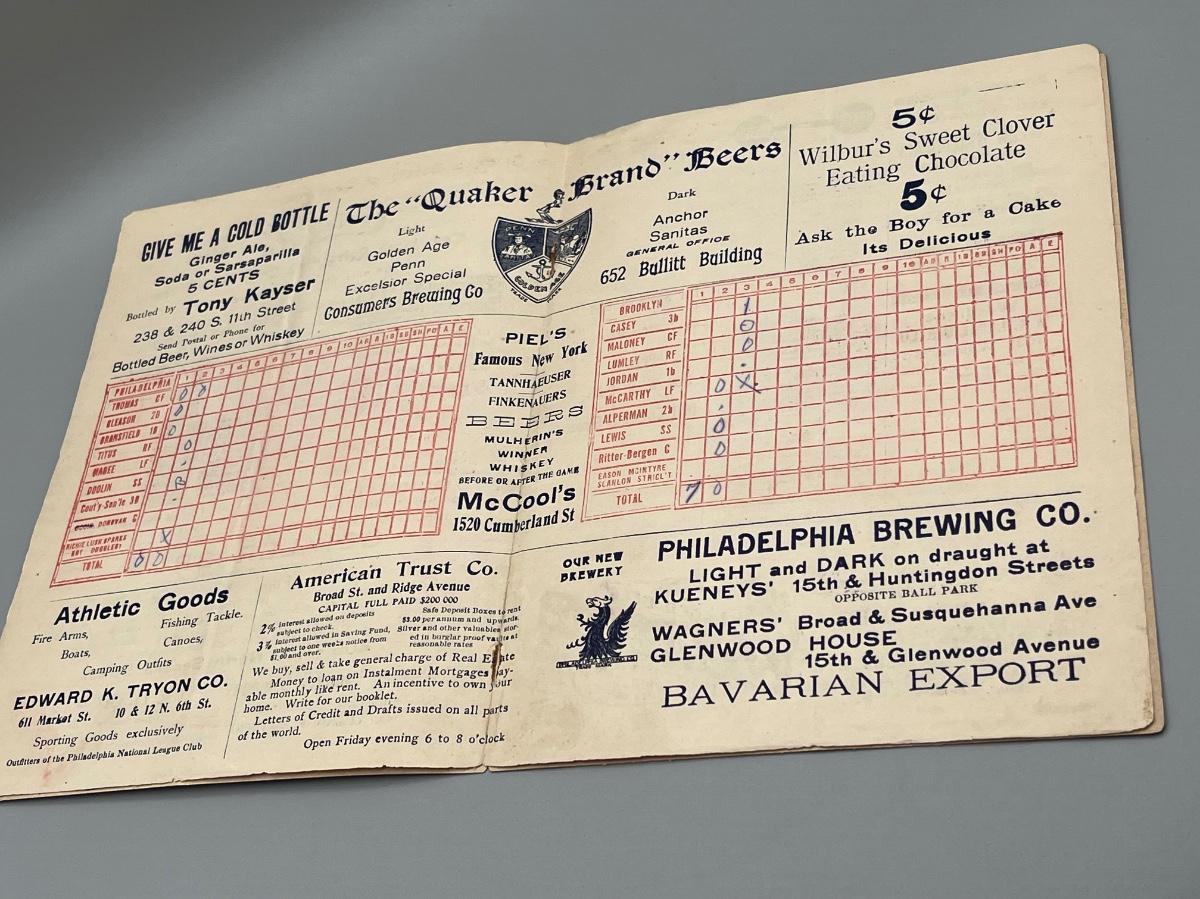 GIVE ME A COLD BOTTLE
Ginger Ale,
Soda or Sarsaparilla
5 CENTS
Bottled by Tony Kayser
238 & 240 S. 11th Street
Send Postal or Phone for
Bottled Beer, Wines or Whiskey
The "Quaker Brand" Beers
Light
Golden Age
Penn
Excelsior Special
Consumers Brewing Co
PENN
GOLDEN AGE
Dark
Anchor
Sanitas
GENERAL OFFICE
652 Bullitt Building
5¢
Wilbur's Sweet Clover
Eating Chocolate
5¢
Ask the Boy for a Cake
Its Delicious
PHILADELPHIA 1 2 3 4 5 6 7 8 9 10 AB R 1B SB SH PO A E
THOMAS CF 0 0
GLEASON 2B 0
BRANSFIELD 1B 0
TITUS RF 0
MAGEE LF
DOOLIN SS B
Court'y-Sen'le 3B
DONOVAN C
RICHIE LUSH SPARKS X
TOTAL 0 0
PIEL'S
Famous New York
TANNHAEUSER
FINKENAUERS
BEERS
MULHERIN'S
WINNER
WHISKEY
BEFORE OR AFTER THE GAME
McCool's
1520 Cumberland St
BROOKLYN 1 2 3 4 5 6 7 8 9 10 AB R 1B SB SH PO A E
CASEY 3b 1
MALONEY CF 0
LUMLEY RF 0
JORDAN 1b
McCARTHY LF 0 X
ALPERMAN 2b
LEWIS SS 0
Ritter-Bergen C 0
EASON McINTYRE
SCANLON STRICL'T
TOTAL 7 0
Athletic Goods
Fire Arms, Fishing Tackle.
Boats, Canoes,
Camping Outfits
EDWARD K. TRYON CO.
611 Market St. 10 & 12 N. 6th St.
Sporting Goods exclusively
Outfitters of the Philadelphia National League Club
American Trust Co.
Broad St. and Ridge Avenue
CAPITAL FULL PAID $200 000
2% interest allowed on deposits subject to check.
3% interest allowed in Saving Fund, subject to one weeks notice from $1.00 and over.
Safe Deposit Boxes to rent
$3.00 per annum and upwards.
Silver and other valuables stored
in burglar proof vaults at
reasonable rates
We buy, sell & take general charge of Real Estate
Money to loan on Instalment Mortgages pay-
able monthly like rent. An incentive to own your
home. Write for our booklet.
Letters of Credit and Drafts issued on all parts
of the world.
Open Friday evening 6 to 8 o'clock
OUR NEW
BREWERY
PHILADELPHIA BREWING CO.
LIGHT and DARK on draught at
KUENEYS' 15th & Huntingdon Streets
OPPOSITE BALL PARK
WAGNERS' Broad & Susquehanna Ave
GLENWOOD HOUSE
15th & Glenwood Avenue
BAVARIAN EXPORT